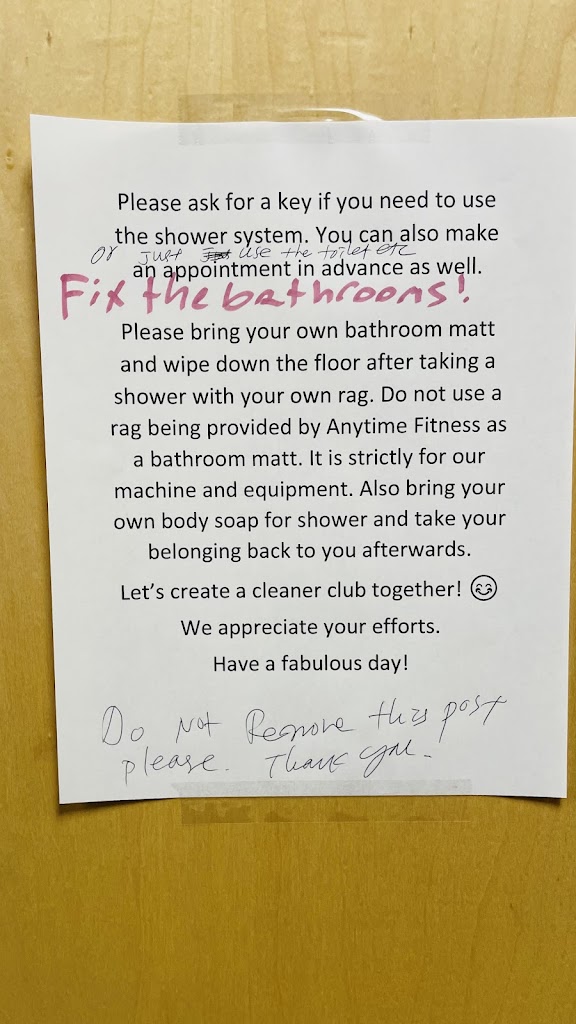 Please ask for a key if you need to use
the shower system. You can also make
or just use the toilet etc
an appointment in advance as well.
Fix the bathrooms!
Please bring your own bathroom matt
and wipe down the floor after taking a
shower with your own rag. Do not use a
rag being provided by Anytime Fitness as
a bathroom matt. It is strictly for our
machine and equipment. Also bring your
own body soap for shower and take your
belonging back to you afterwards.
Let's create a cleaner club together! 😊
We appreciate your efforts.
Have a fabulous day!
Do Not Remove this post
please. Thank you.